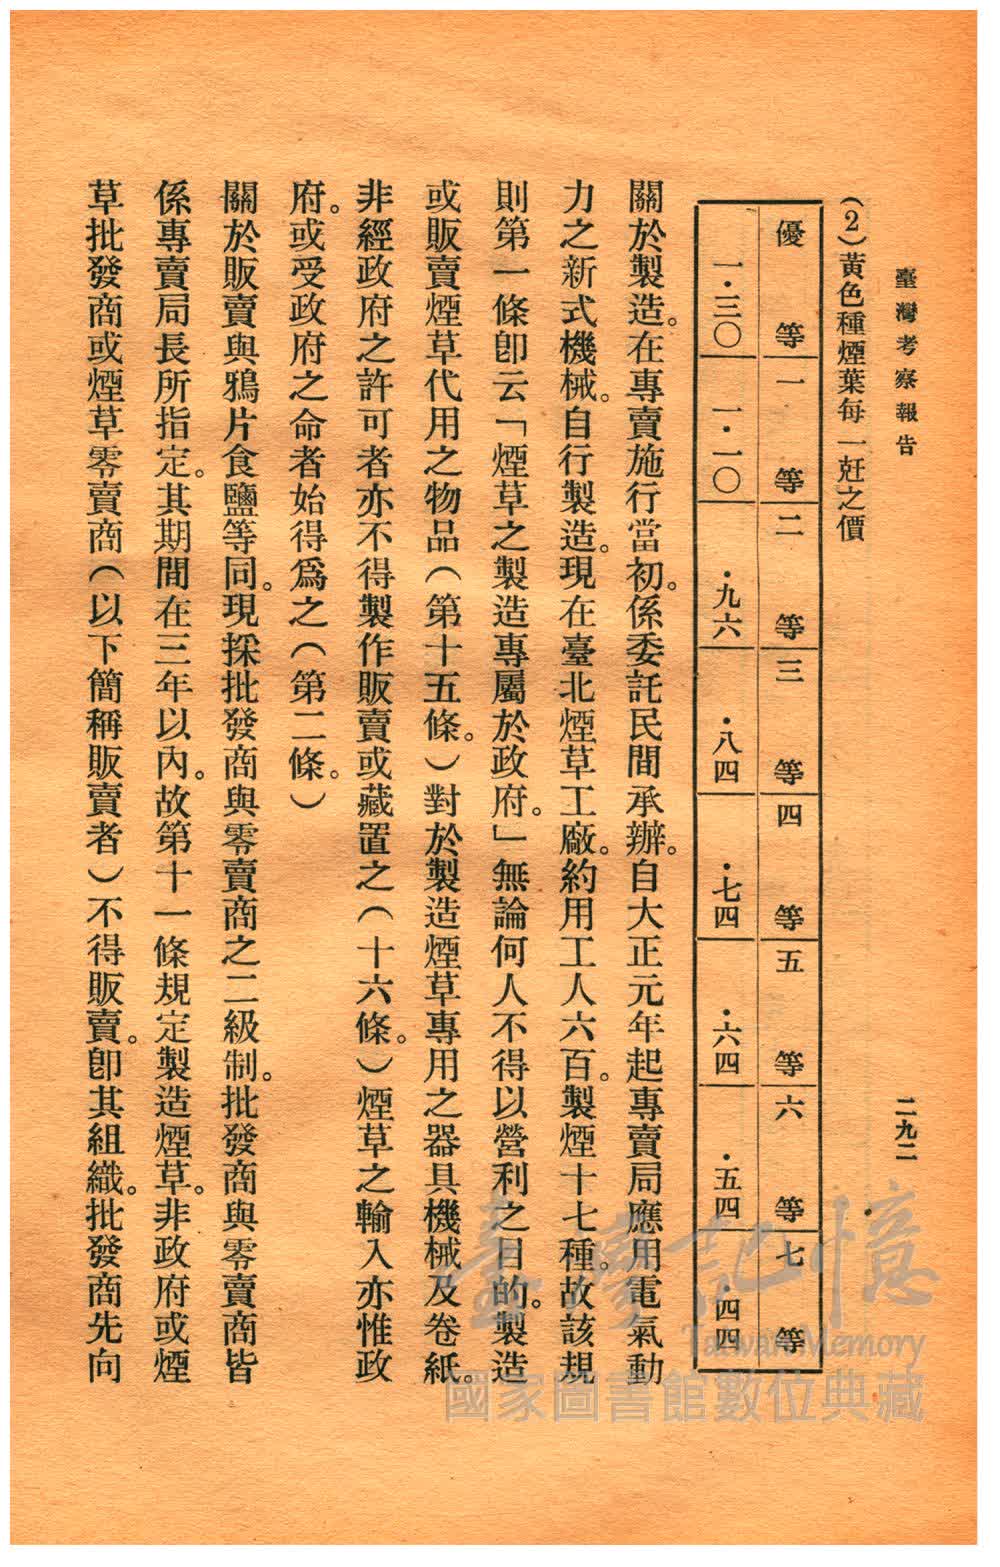 臺灣考察報告
二九二
(2)黃色種煙葉每一兛之價
優等 一等 二等 三等 四等 五等 六等 七等
一・三〇 一・一〇 ・九六 ・八四 ・七四 ・六四 ・五四 四四
關於製造。在專賣施行當初。係委託民間承辦。自大正元年起專賣局應用電氣動
力之新式機械。自行製造。現在臺北煙草工廠。約用工人六百。製煙十七種。故該規
則第一條卽云「煙草之製造專屬於政府。」無論何人不得以營利之目的。製造
或販賣煙草代用之物品(第十五條。)對於製造煙草專用之器具機械及卷紙。
非經政府之許可者亦不得製作販賣或藏置之(十六條。)煙草之輸入亦惟政
府。或受政府之命者始得爲之(第二條。)
關於販賣與鴉片食鹽等同。現採批發商與零賣商之二級制。批發商與零賣商皆
係專賣局長所指定。其期間在三年以內。故第十一條規定製造煙草。非政府或煙
草批發商或煙草零賣商(以下簡稱販賣者)不得販賣。卽其組織。批發商先向
臺灣記憶
Taiwan Memory
國家圖書館數位典藏